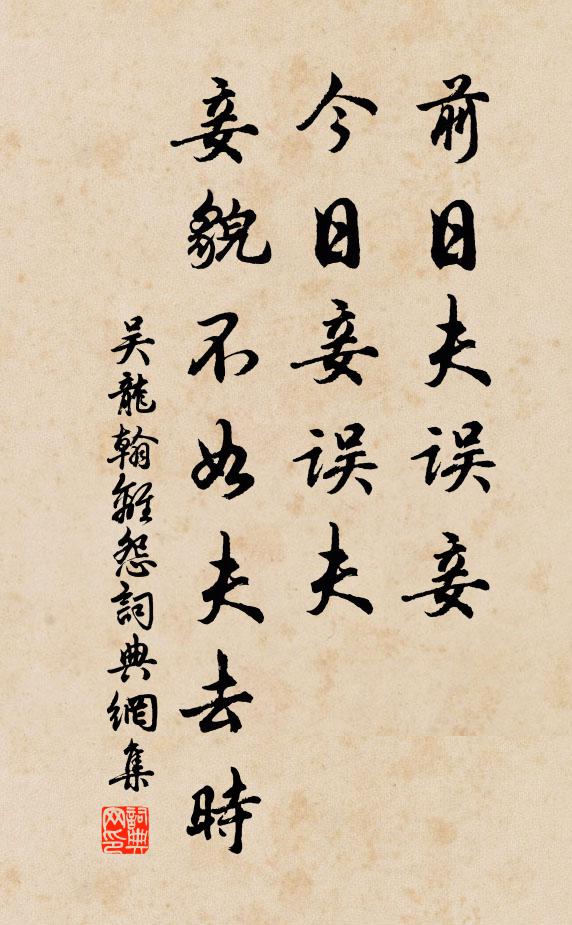 前日夫误妾
今日妾误夫
妾貌不如夫去時
吴龍翰離怨詞典網集
詞典网印